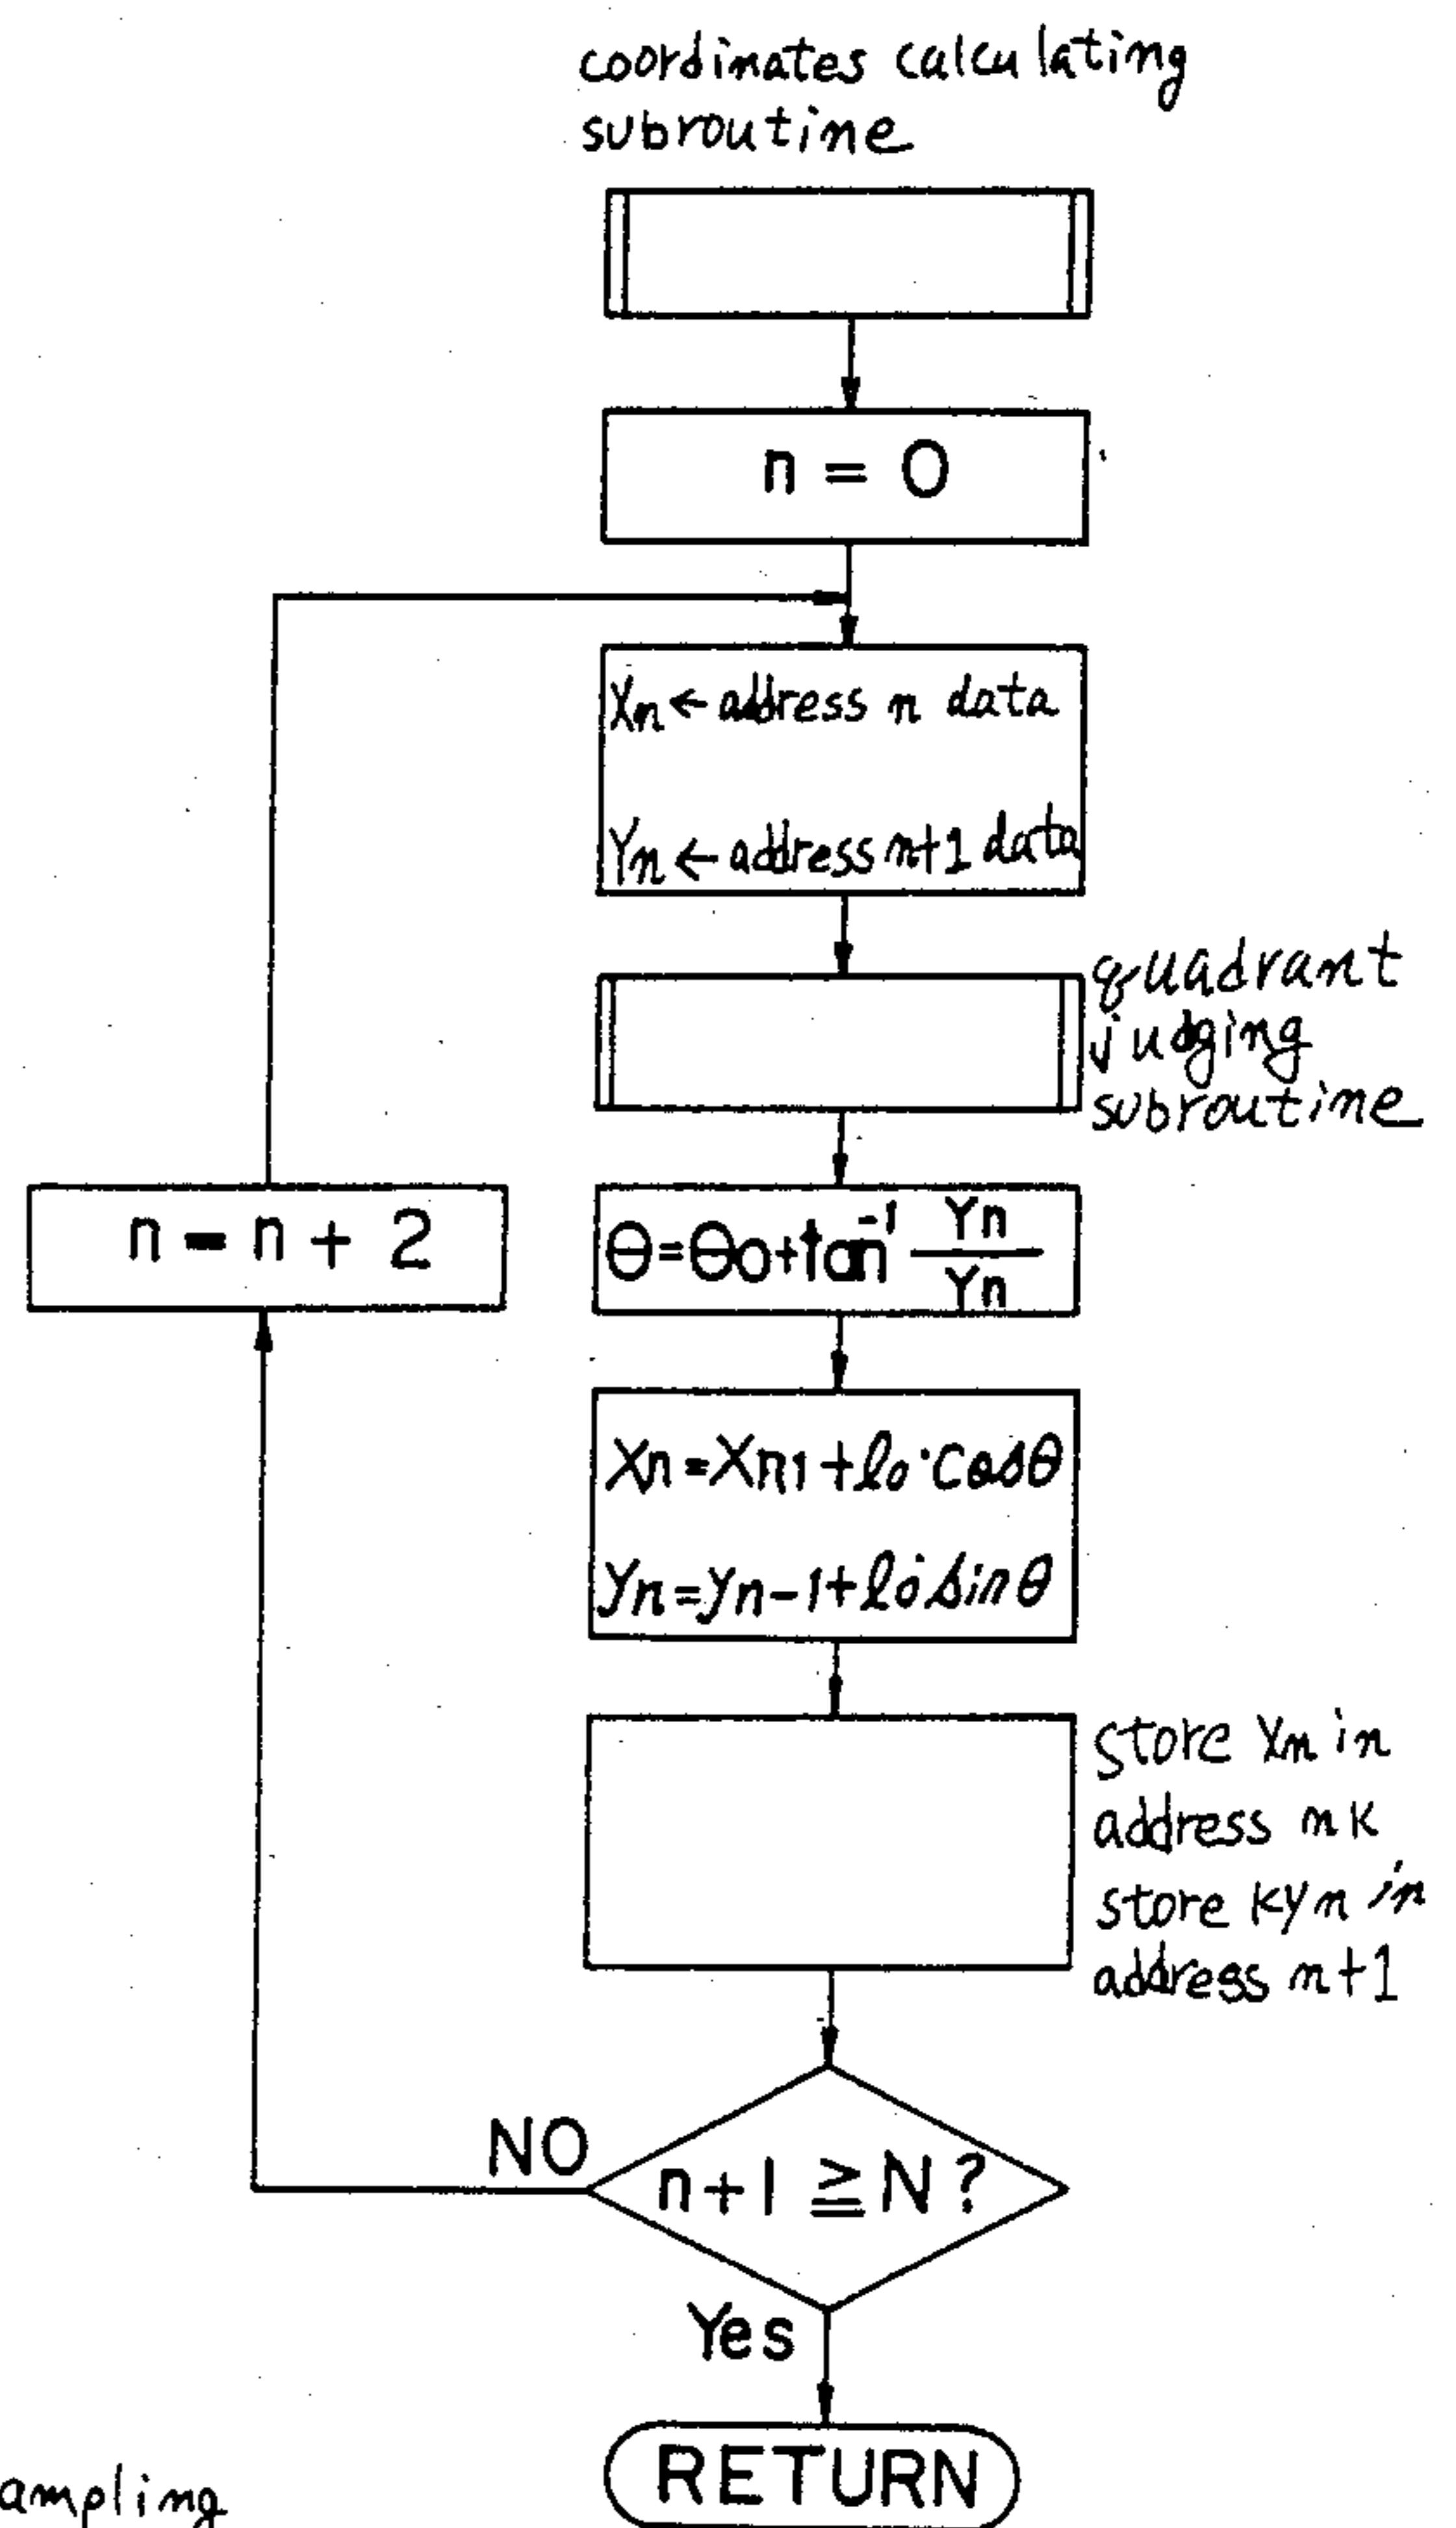 coordinates calculating
subroutine
n = 0
Xn ← address n data
Yn ← address n+1 data
quadrant
judging
subroutine
n = n + 2
θ = θo + tan⁻¹ Yn / Yn
Xn = Xn1 + lo · cosθ
yn = yn-1 + lo · sinθ
store Xn in
address nK
store Kyn in
address n+1
NO
n+1 ≧ N ?
Yes
RETURN
ampling